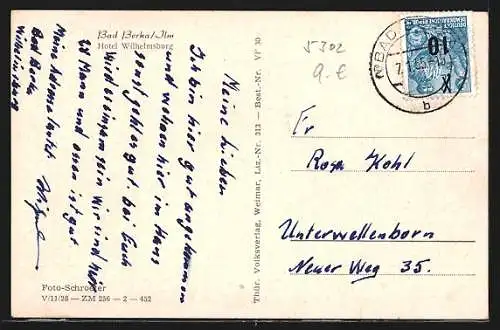 Bad Berka/Ilm
Hotel Wilhelmsburg
Meine Lieben
Ich bin hier gut angekommen
und wohnen hier im Haus
sonst geht es gut. bei Euch
wird es einsam sein Wir sind hier
28 Mann und essen ist gut
Meine Adresse lautet
Bad Berka
Wilhelmsburg
Foto-Schroeter
V/11/28 — ZM 256 — 2 — 452
Thür. Volksverlag, Weimar, Liz.-Nr. 313 — Best.-Nr. VF 30
5302
9.€
BAD
b
10
DEUTSCHE
DEMOKRATISCHE REPUBLIK
Fr
Rosa Kohl
Unterwellenborn
Neuer Weg 35.